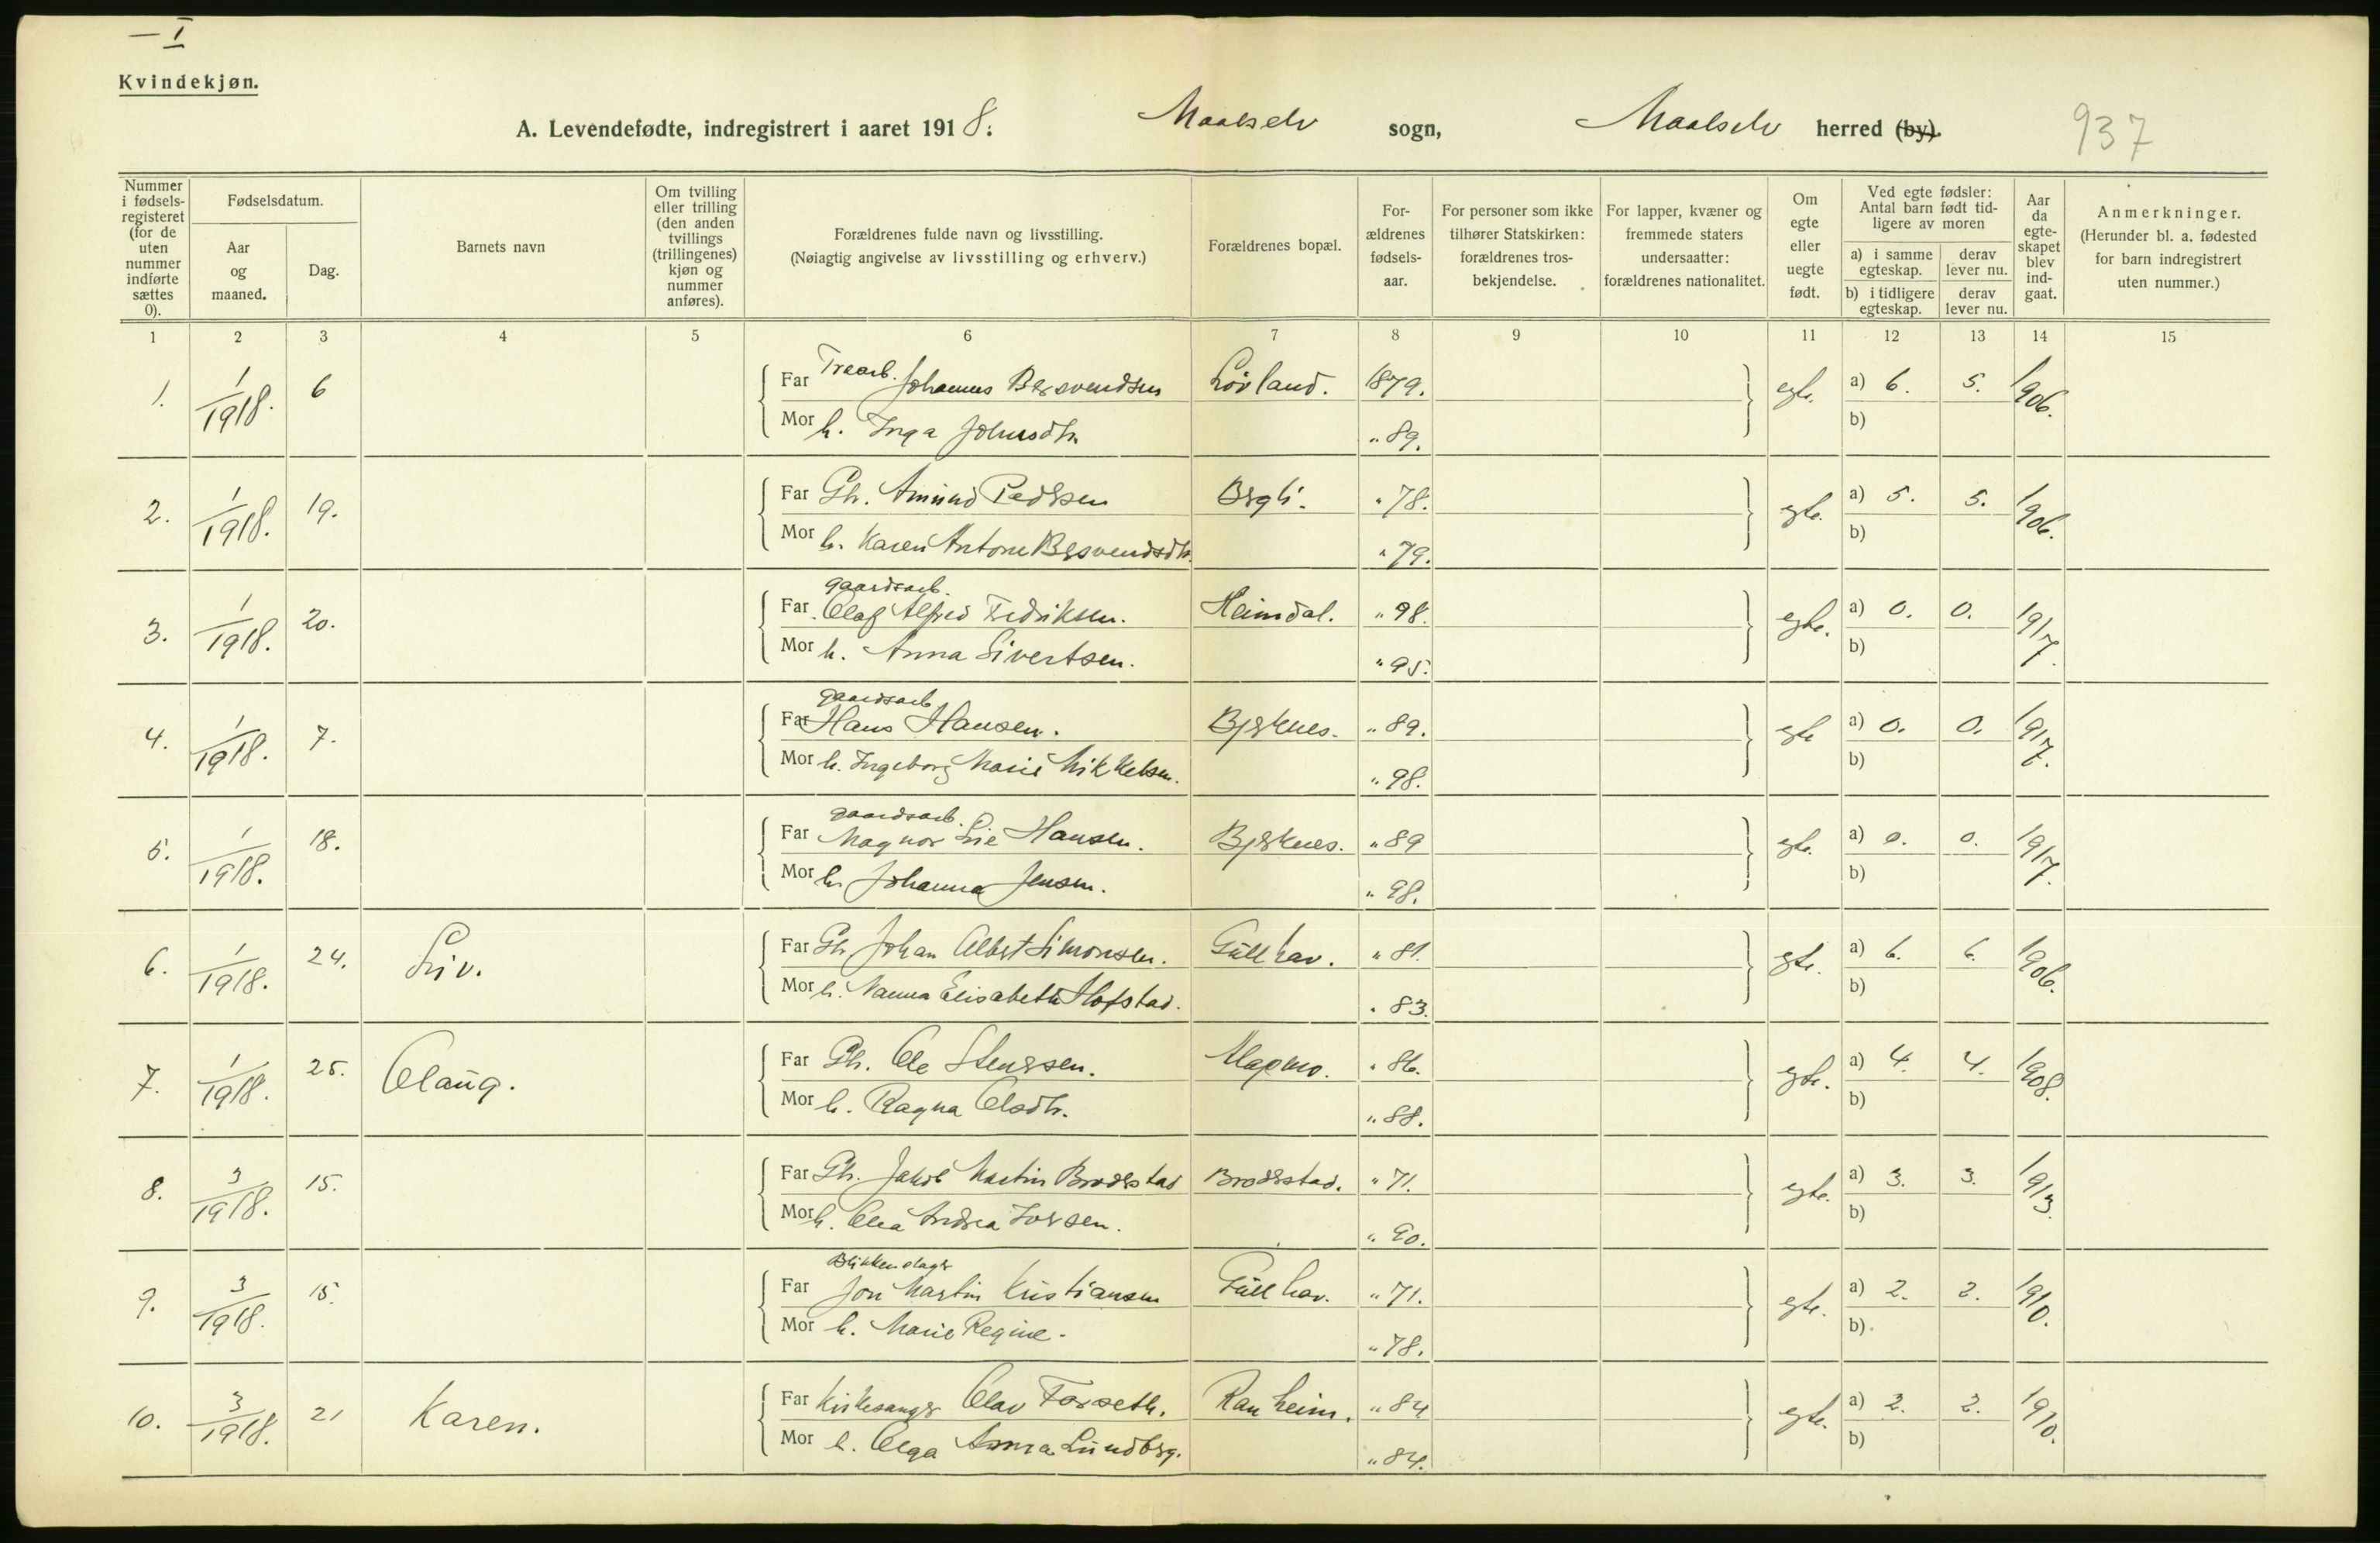 — I
Kvindekjøn.
A. Levendefødte, indregistrert i aaret 1918. Maalselv sogn, Maalselv herred (by). 937
Nummer i fødsels-registeret (for de uten nummer indførte sættes 0).
Fødselsdatum.
Aar og maaned.
Dag.
Barnets navn
Om tvilling eller trilling (den anden tvillings (trillingenes) kjøn og nummer anføres).
Forældrenes fulde navn og livsstilling.
(Nøiagtig angivelse av livsstilling og erhverv.)
Forældrenes bopæl.
For-ældrenes fødsels-aar.
For personer som ikke tilhører Statskirken: forældrenes tros-bekjendelse.
For lapper, kvæner og fremmede staters undersaatter: forældrenes nationalitet.
Om egte eller uegte født.
Ved egte fødsler: Antal barn født tid-ligere av moren
a) i samme egteskap.
derav lever nu.
b) i tidligere egteskap.
derav lever nu.
Aar da egte-skapet blev ind-gaat.
Anmerkninger.
(Herunder bl. a. fødested for barn indregistrert uten nummer.)
1 2 3 4 5 6 7 8 9 10 11 12 13 14 15
1. 1/1918. 6 Far Træarb. Johannes Bersvendsen Lövland. 1879. egte. a) 6. 5. 1906.
Mor h. Inga Johnsdtr. " 89. b)
2. 1/1918. 19. Far Gbr. Amund Pedersen Bergli. " 78. egte. a) 5. 5. 1906.
Mor h. Karen Antone Bersvendsdtr. " 79. b)
3. 1/1918. 20. gaardsarb.
Far Olaf Alfred Fredriksen. Heimdal. " 98. egte. a) 0. 0. 1917.
Mor h. Anna Sivertsen. " 95. b)
4. 1/1918. 7. gaardsarb.
Far Hans Hansen. Bjerknes. " 89. egte a) 0. 0. 1917.
Mor h. Ingeborg Marie Mikkelsen. " 98. b)
5. 1/1918. 18. gaardsarb.
Far Magnor Lie Hansen. Bjerknes. " 89 egte. a) 0. 0. 1917.
Mor h. Johanna Jensen. " 98. b)
6. 1/1918. 24. Liv. Far Gbr. Johan Albert Simonsen. Gullhav. " 81. egte. a) 6. 6. 1906.
Mor h. Nanna Elisabeth Hofstad. " 83. b)
7. 1/1918. 25. Olaug. Far Gbr. Ole Stenersen. Alapmo. " 86. egte. a) 4. 4. 1908.
Mor h. Ragna Olsdtr. " 88. b)
8. 3/1918. 15. Far Gbr. Jakob Martin Broderstad Broderstad. " 71. egte. a) 3. 3. 1913.
Mor h. Olea Andrea Iversen. " 90. b)
9. 3/1918. 15. Blikkenslager
Far Jon Martin Kristiansen Gullhav. " 71. egte. a) 2. 2. 1910.
Mor h. Marie Regine. " 78. b)
10. 3/1918. 21 Karen. Far Kirkesanger Olav Forseth. Ranheim. " 84 egte. a) 2. 2. 1910.
Mor h. Olga Anna Lundberg. " 84. b)